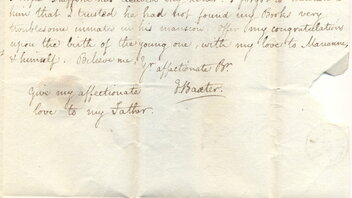 him that I trusted he had not found my Books very
troublesome inmates in his mansion. Offer my congratulations
upon the birth of the young one, with my love to Marianne,
& himself. Believe me Yr affectionate Br.
J Baxter.
Give my affectionate
love to my Father.